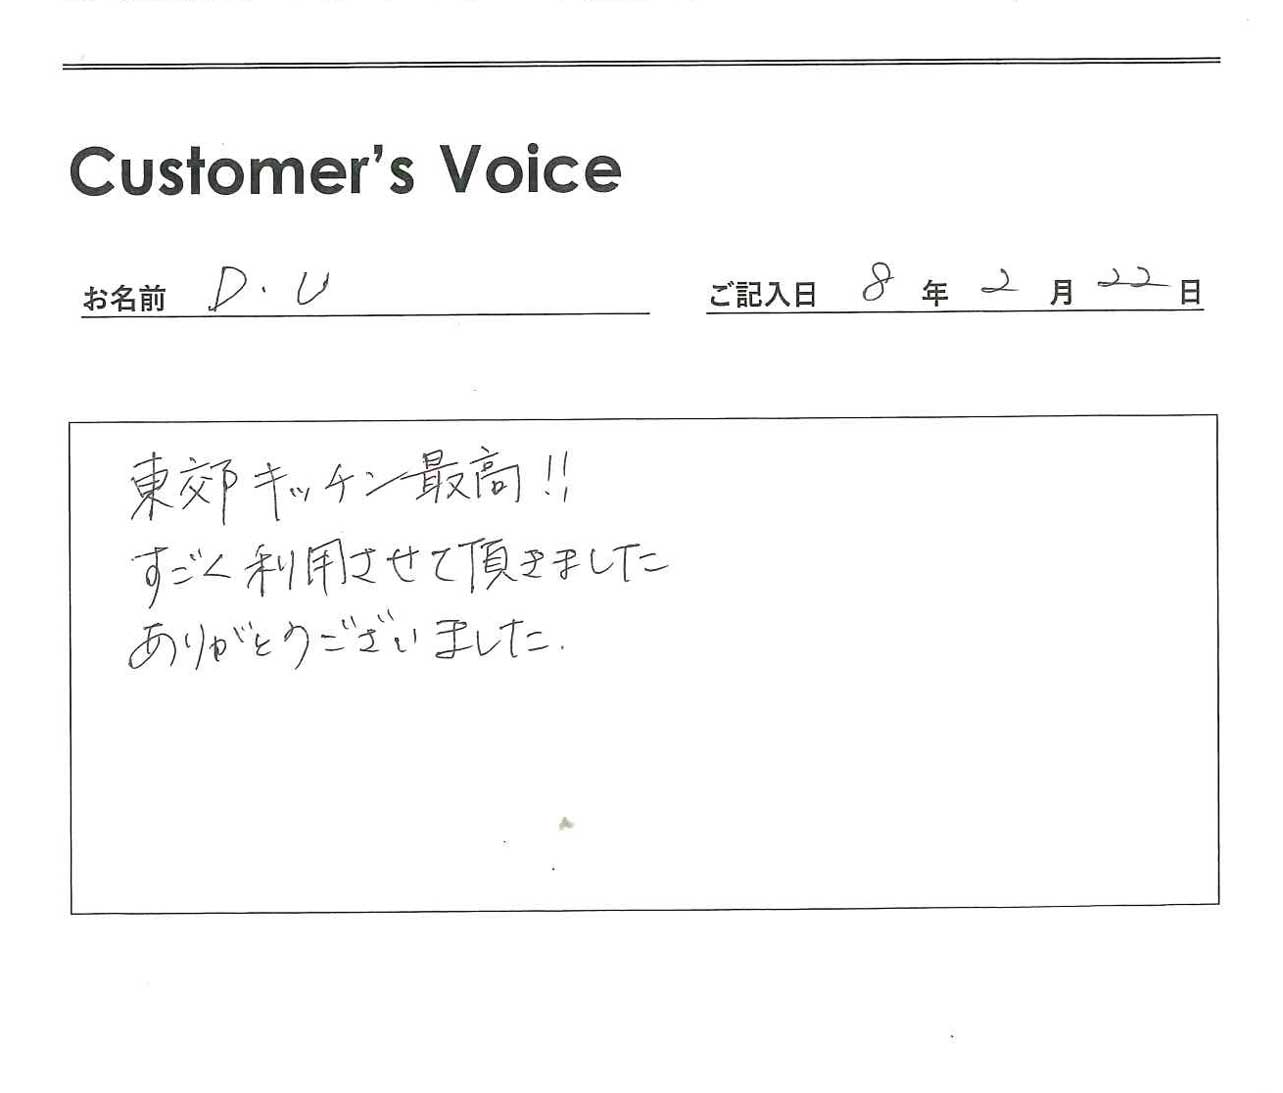 Customer's Voice
お名前 D.U ご記入日 8年2月22日
東郊キッチン最高!!
すごく利用させて頂きました
ありがとうございました.